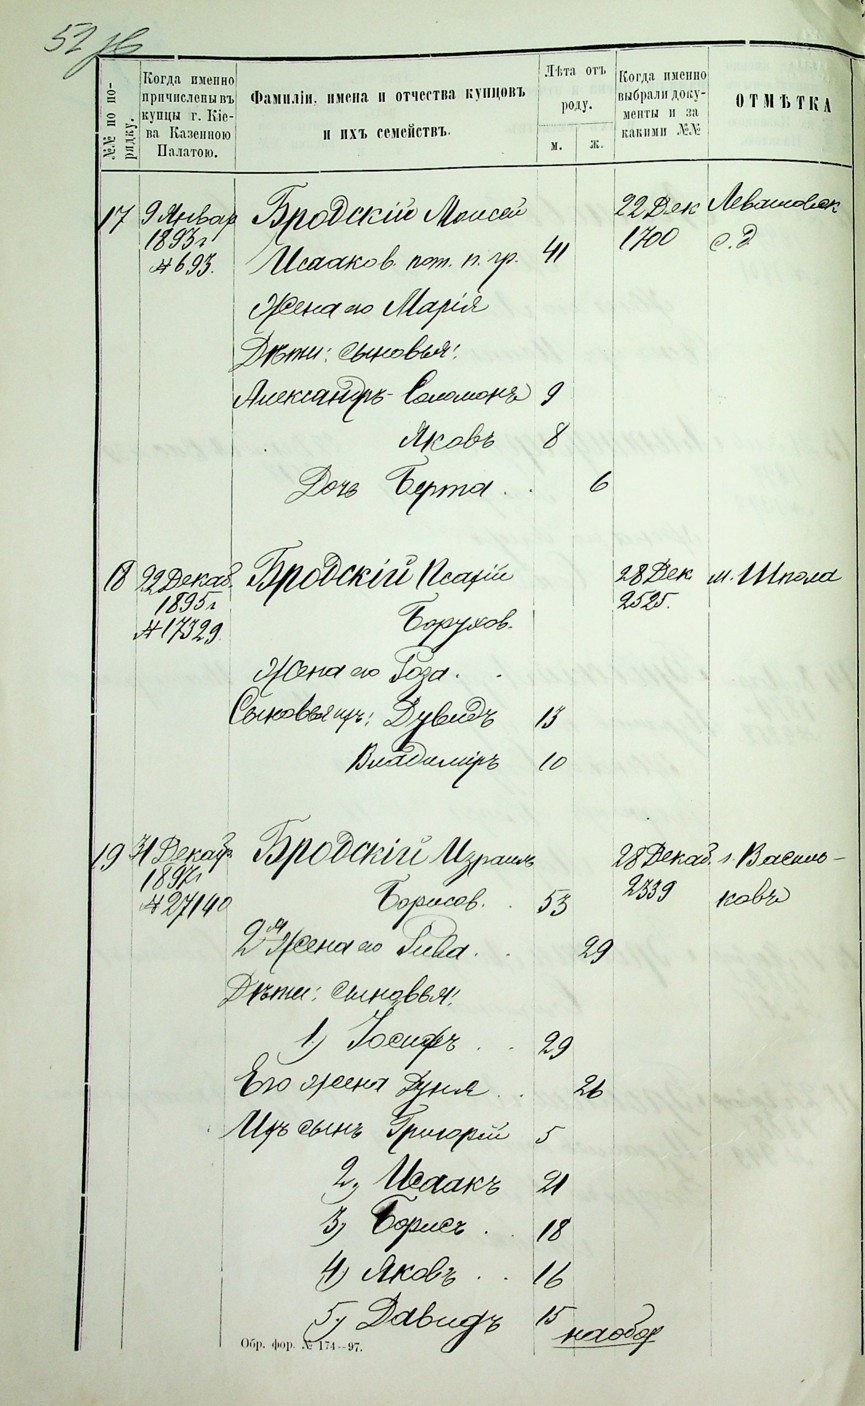 52 об
№№ по по-
рядку.
Когда именно
причислены въ
купцы г. Кіе-
ва Казенною
Палатою.
Фамиліи, имена и отчества купцовъ
и ихъ семействъ.
Лѣта отъ
роду.
м. ж.
Когда именно
выбрали доку-
менты и за
какими №№
ОТМѢТКА
17 9 Январ Бродскій Моисей 22 Дек Левашовск
1893 г 1700 с. д
№ 693. Исааков. пот. п. гр. 41
Жена его Марія
Дѣти: сыновья:
Александръ-Соломонъ 9
Яковъ 8
Дочь Берта . . 6
18 22 Декаб. Бродскій Исарій 28 Дек м. Шпола
1895 г 2525.
№ 17329 Борухов.
Жена его Роза . .
Сыновья ихъ: Дувидъ 13
Владимиръ 10
19 31 Декаб Бродскій Израиль 28 Декаб. г. Василь-
1897 г 2339 ковъ
№ 27140 Борисов. . 53
2я Жена его Рива . . 29
Дѣти: сыновья:
1) Іосифъ . . 29
Его жена Дуня . . 26
Ихъ сынъ Григорій 5
2) Исаакъ 21
3) Борисъ . . 18
4) Яковъ . . 16
5) Давидъ 15
наобор
Обр. фор. № 174—97.